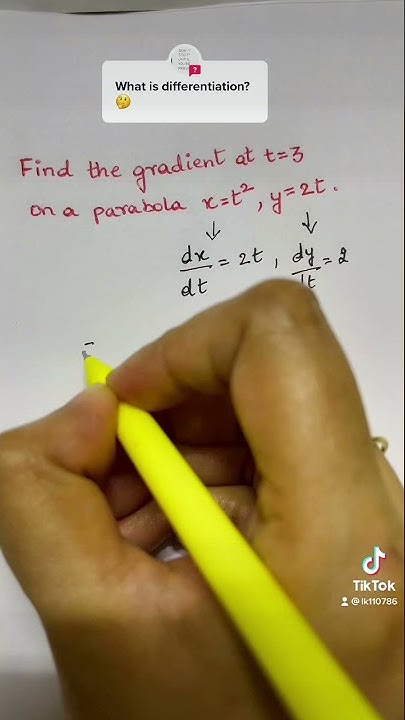 What is differentiation?
🤔
Find the gradient at t=3
on a parabola x=t², y=2t.
dx/dt = 2t, dy/dt = 2
TikTok
@lk110786